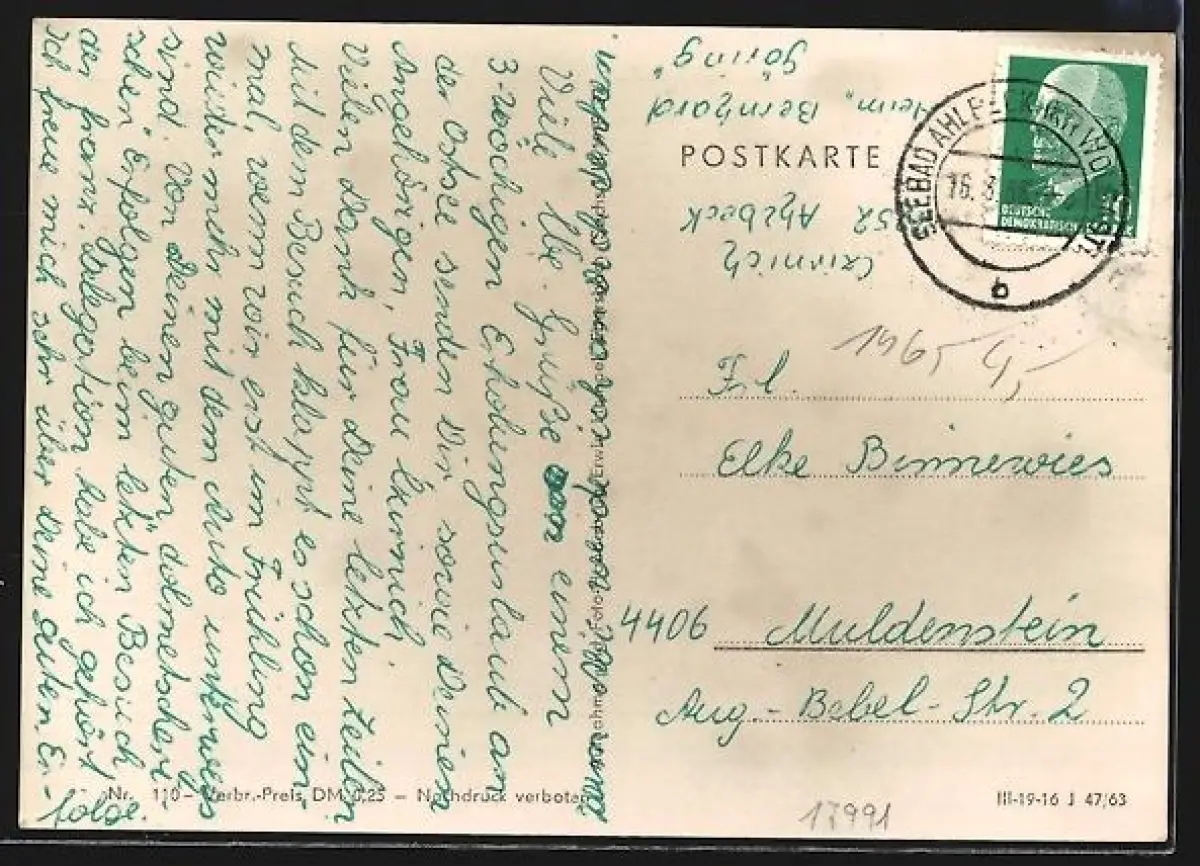 Viele lbe. Grüße von einem
3-wöchigen Erholungsurlaub an
der Ostsee senden Dir sowie Deinen
Angehörigen, Frau Czirnich,
Vielen Dank für Deine letzten Zeilen
Mit dem Besuch klappt es schon ein-
mal, wenn wir erst im Frühling
wieder mehr mit dem Auto unterwegs
sind. Von Deinen guten dolmetscheri-
schen Erfolgen beim letzten Besuch
der franz. Delegation habe ich gehört
ich freue mich sehr über Deine guten Er-
folge.
Czirnich
252 Ahlbeck
Heim "Bernhard
Göring"
POSTKARTE
SEEBAD AHLBECK
16.3.
b
DEUTSCHE
DEMOKRATISCHE
1965 4,-
Frl.
Elke Binnewies
4406 Muldenstein
Aug.-Bebel-Str. 2
Nr. 110 – Verbr.-Preis DM 0,25 – Nachdruck verboten
III-19-16 J 47/63
17991